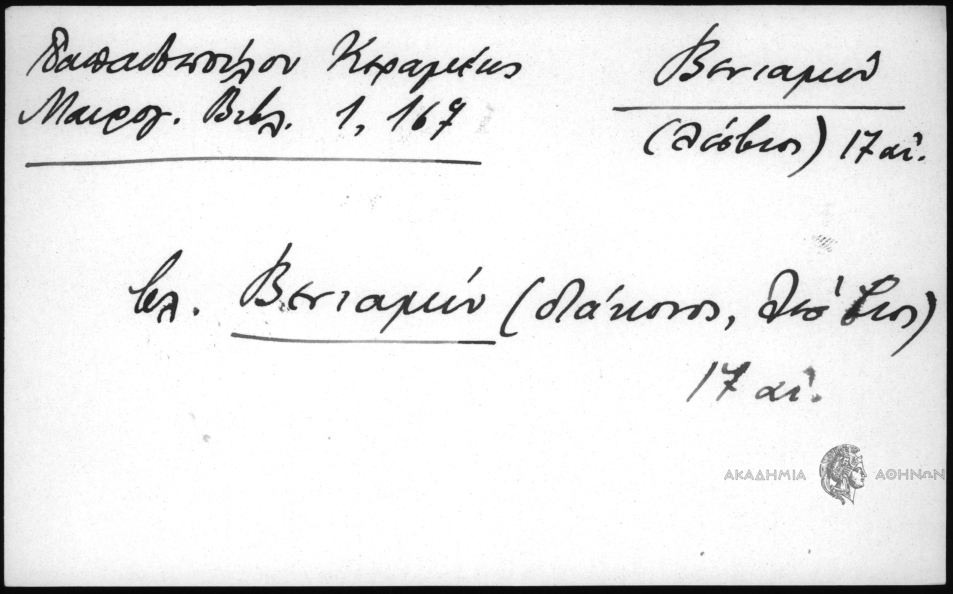 Παπαδοπούλου Κεραμεύς
Μαυρογ. Βιβλ. 1, 167
Βενιαμίν
(Λέσβιος) 17 αἰ.
βλ. Βενιαμίν (διάκονος, Λέσβιος)
17 αἰ.
ΑΚΑΔΗΜΙΑ ΑΘΗΝΩΝ